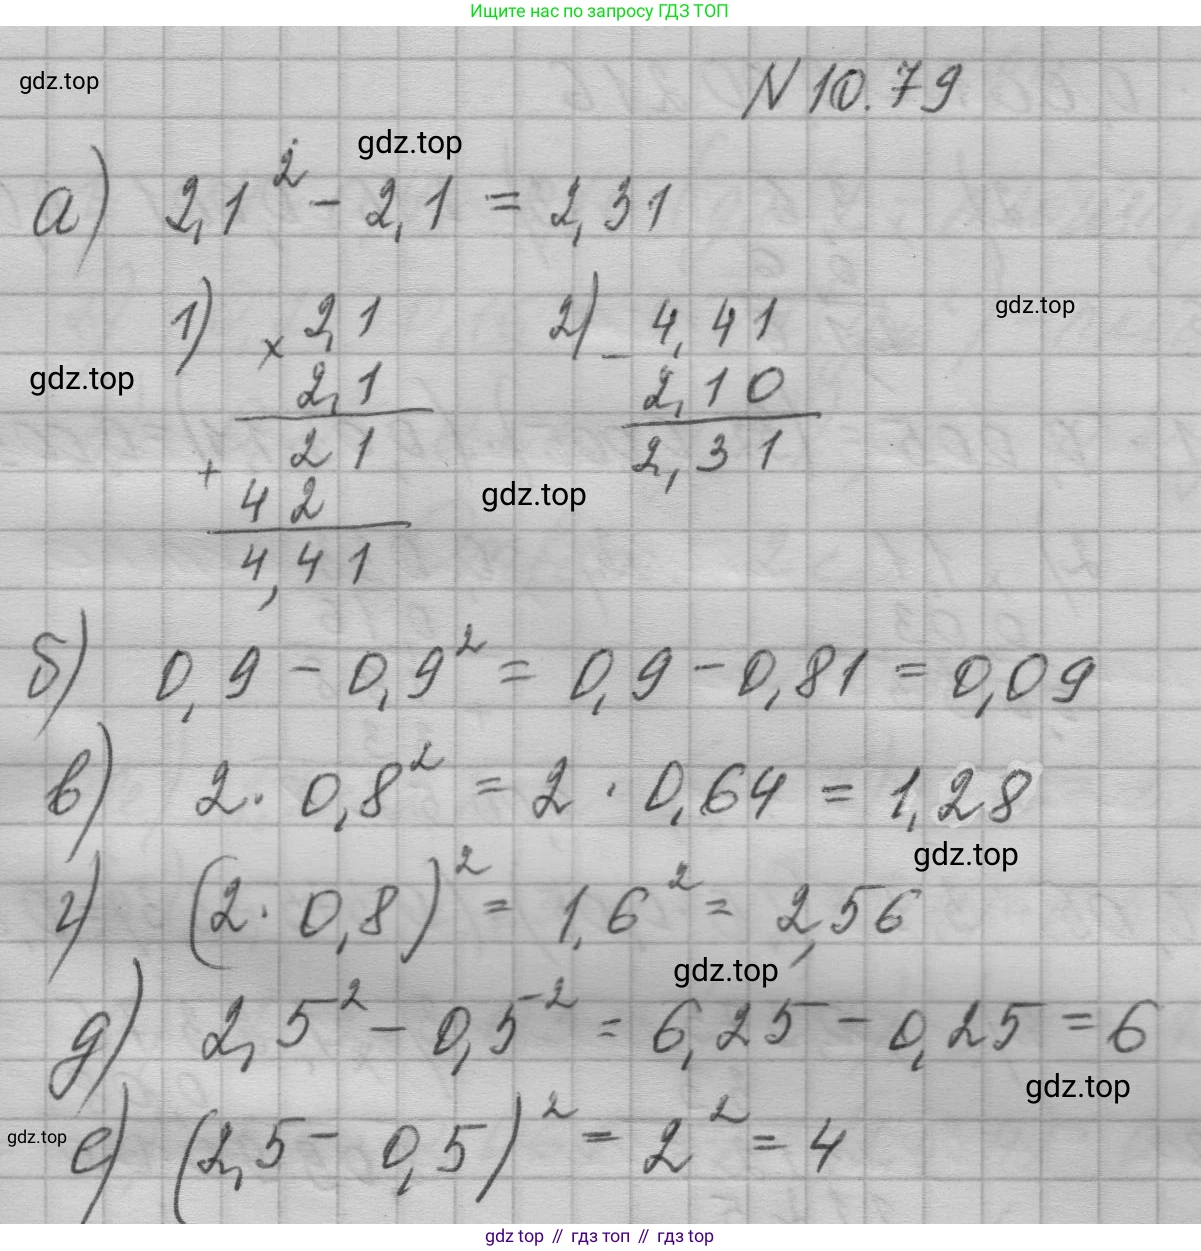 Ищите нас по запросу ГДЗ ТОП
gdz.top
N 10.79
gdz.top
а) 2,1² - 2,1 = 2,31
1) × 2,1
2,1
21
+ 42
4,41
2) - 4,41
2,10
2,31
gdz.top
gdz.top
gdz.top
б) 0,9 - 0,9² = 0,9 - 0,81 = 0,09
в) 2 · 0,8² = 2 · 0,64 = 1,28
gdz.top
г) (2 · 0,8)² = 1,6² = 2,56
gdz.top
д) 2,5² - 0,5⁻² = 6,25 - 0,25 = 6
gdz.top
gdz.top
е) (2,5 - 0,5)² = 2² = 4
gdz top // гдз топ // гдз top